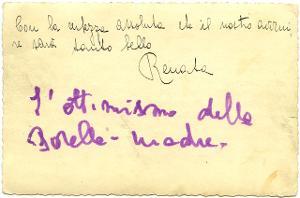 Con la certezza assoluta che il nostro avveni
re sarà tanto bello
Renata
L'ottimismo della
Sorella-madre.